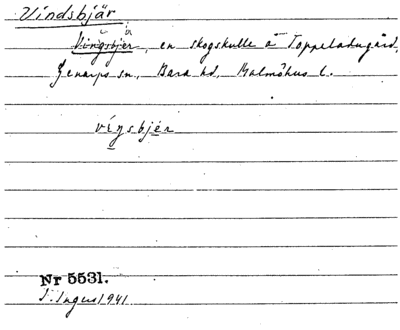 Vindsbjär
Vingsbjer, en skogskulle å Toppeladugård,
Genarps sn., Bara hd, Malmöhus l.
víŋsbjèr
Nr 5531.
I. Ingers 1941